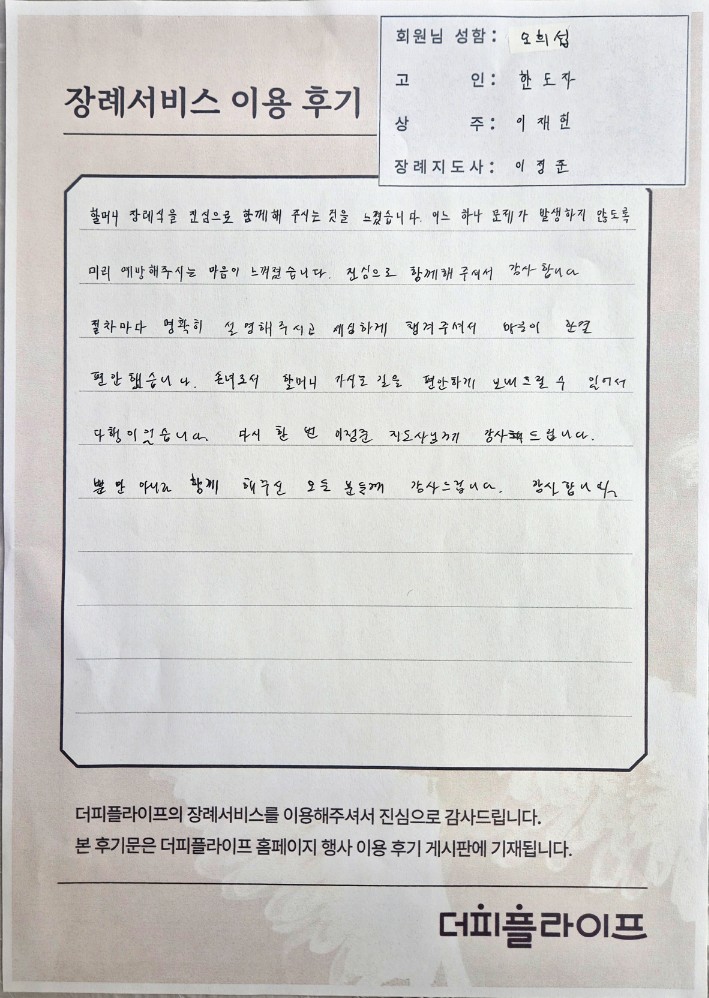 회원님 성함: 오희섭
고 인: 한도자
상 주: 이재헌
장례지도사: 이정준
장례서비스 이용 후기
할머니 장례식을 진심으로 함께해 주시는 것을 느꼈습니다. 어느 하나 문제가 발생하지 않도록
미리 예방해주시는 마음이 느껴졌습니다. 진심으로 함께해 주셔서 감사합니다
절차마다 명확히 설명해주시고 세심하게 챙겨주셔서 마음이 한결
편안했습니다. 손녀로서 할머니 가시는 길을 편안하게 보내드릴 수 있어서
다행이었습니다. 다시 한 번 이정준 지도사님께 감사드립니다.
뿐만 아니라 함께 해주신 모든 분들께 감사드립니다. 감사합니다
더피플라이프의 장례서비스를 이용해주셔서 진심으로 감사드립니다.
본 후기문은 더피플라이프 홈페이지 행사 이용 후기 게시판에 기재됩니다.
더피플라이프